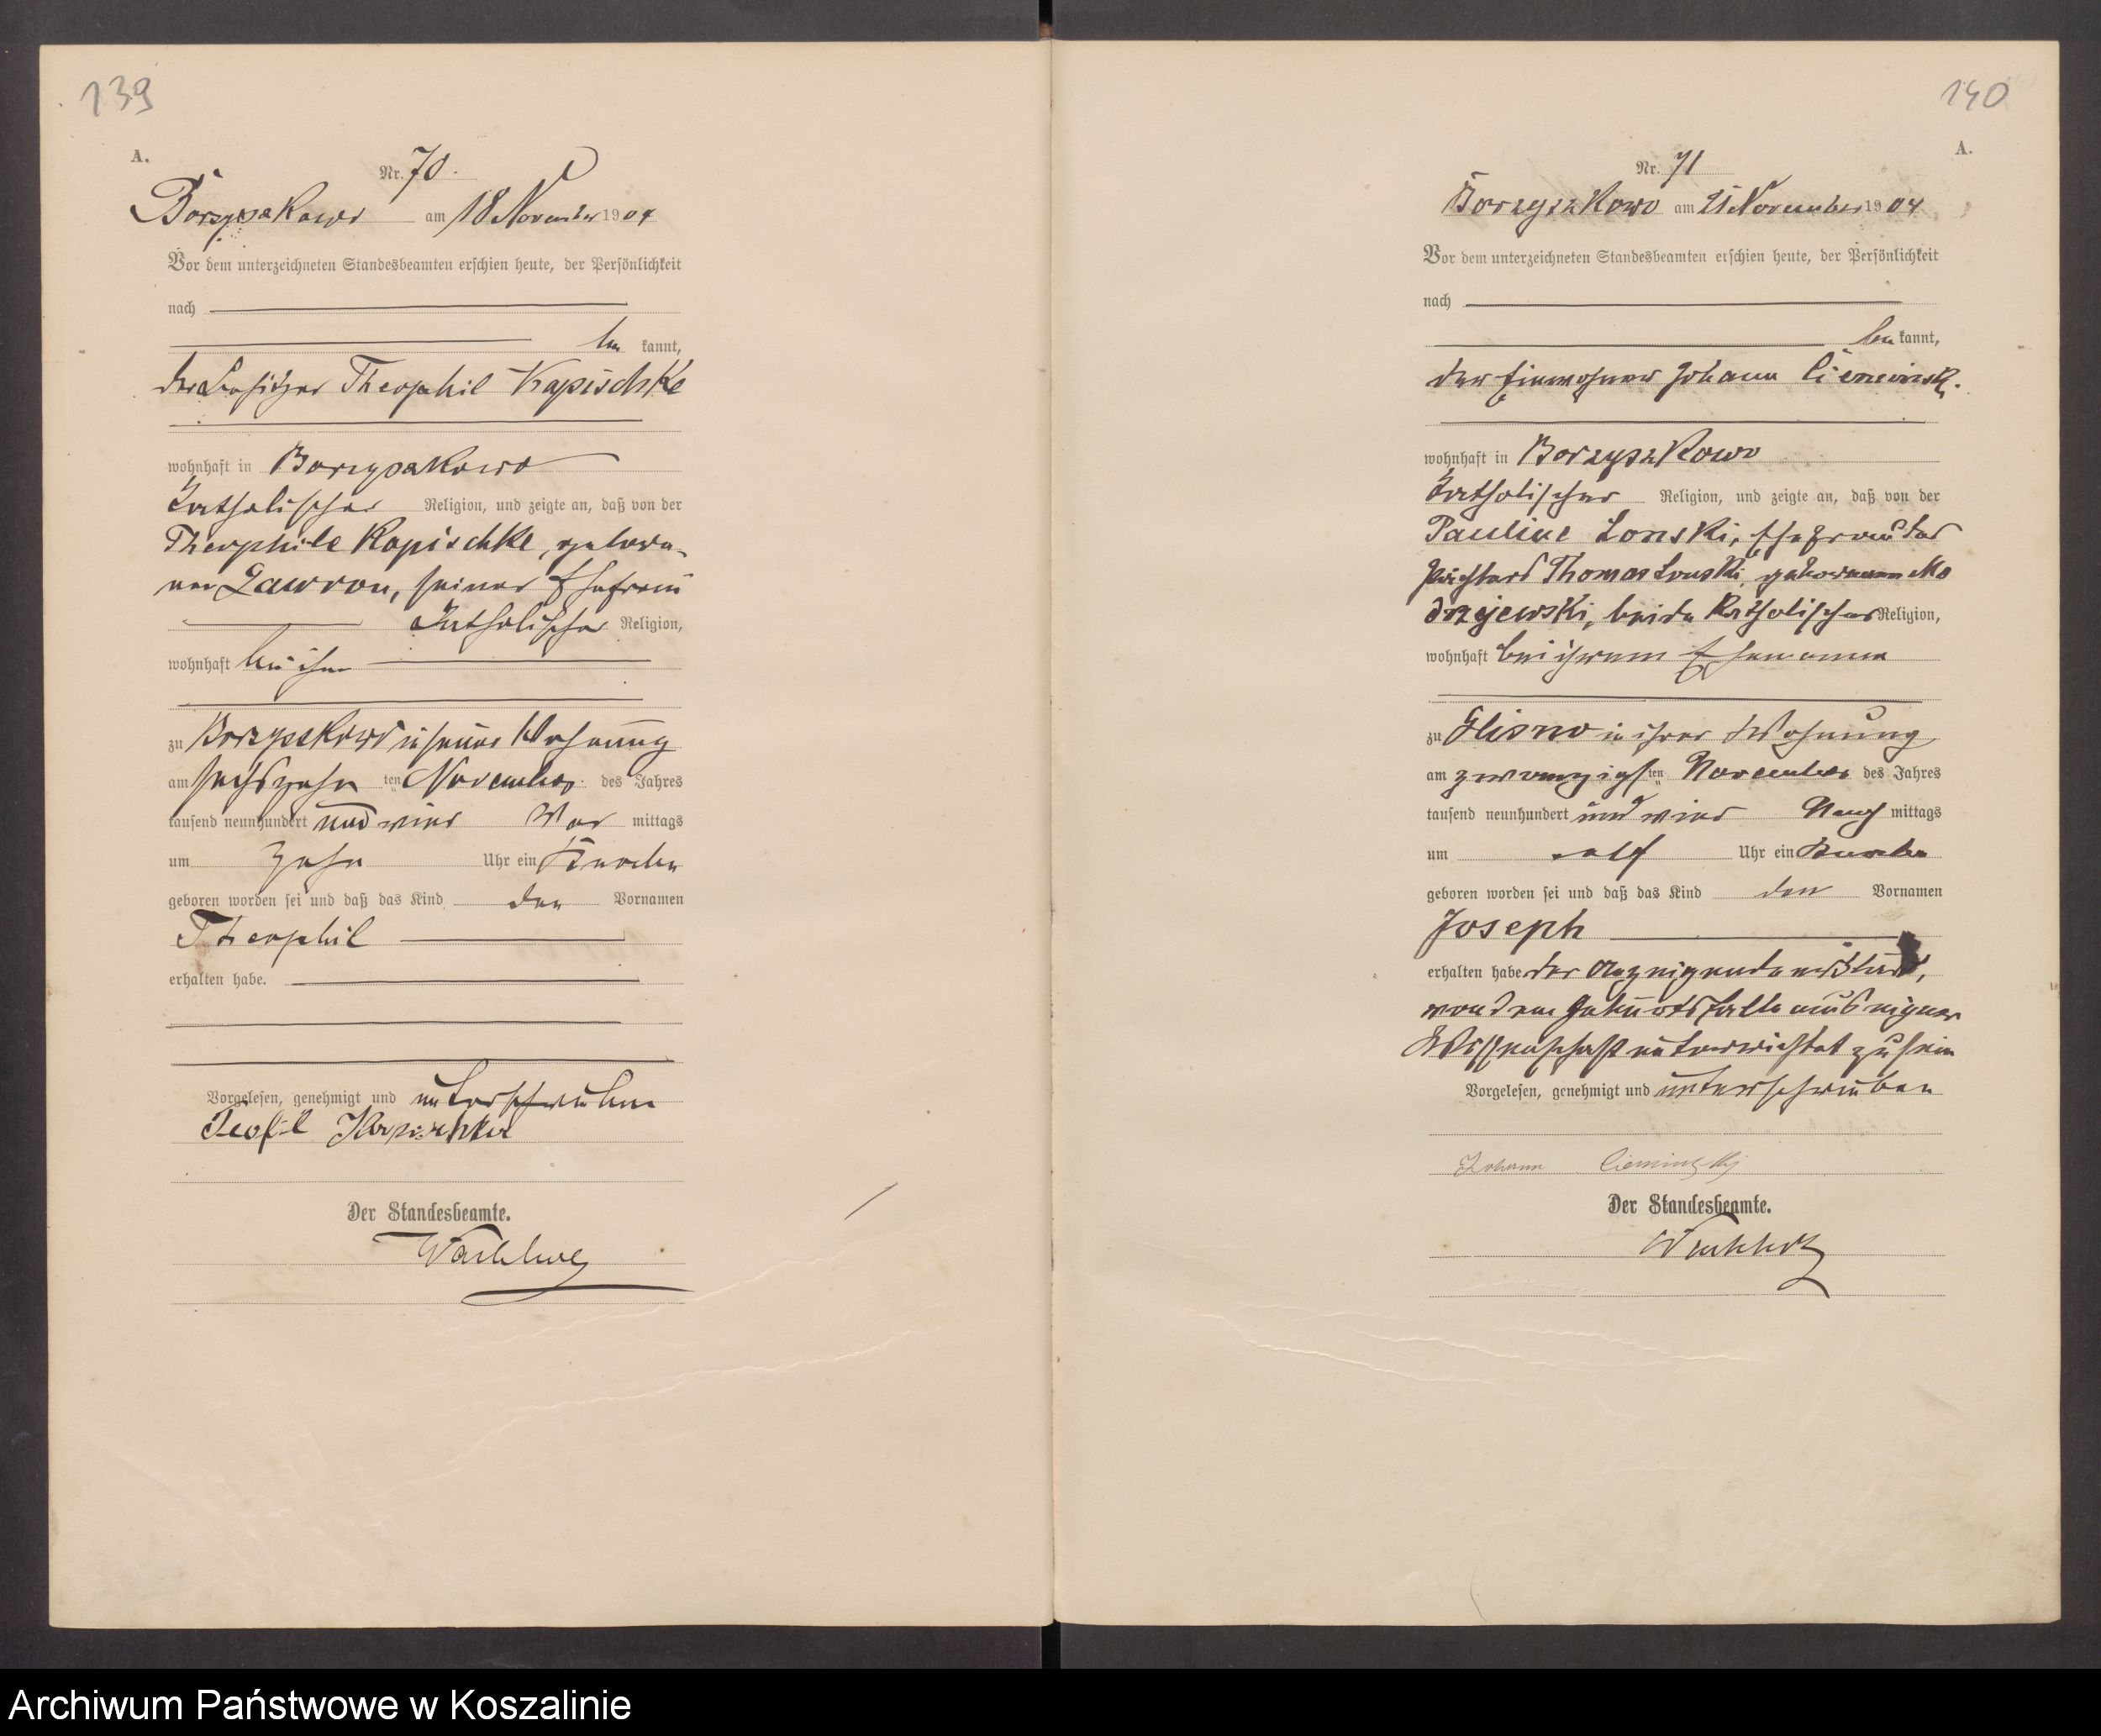 139
A.
Nr. 70.
Borzyszkowo am 18 November 1904
Vor dem unterzeichneten Standesbeamten erschien heute, der Persönlichkeit
nach
be kannt,
der Besitzer Theophil Kapischke
wohnhaft in Borzyszkowo
katholischer Religion, und zeigte an, daß von der
Theophile Kapischke, gebore-
nen Gawron, seiner Ehefrau
katholischer Religion,
wohnhaft bei ihm
zu Borzyszkowo in seiner Wohnung
am sechszehn ten November des Jahres
tausend neunhundert und vier Vor mittags
um zehn Uhr ein Knabe
geboren worden sei und daß das Kind den Vornamen
Theophil
erhalten habe.
Vorgelesen, genehmigt und unterschrieben
Teofil
Der Standesbeamte.
140
A.
Nr. 71
Borzyszkowo am 21 November 1904
Vor dem unterzeichneten Standesbeamten erschien heute, der Persönlichkeit
nach
be kannt,
der Einwohner Johann
wohnhaft in Borzyszkowo
katholischer Religion, und zeigte an, daß von der
Pauline Lonski, Ehefrau des
Thomas Lonski, geborenen Mo
drzejewski, beide katholischer Religion,
wohnhaft bei ihrem Ehemanne
zu Glisno in ihrer Wohnung
am zwanzigs ten November des Jahres
tausend neunhundert und vier Nach mittags
um elf Uhr ein Knabe
geboren worden sei und daß das Kind den Vornamen
Joseph
erhalten habe der Anzeigende erklärt,
von dem Geburtsfalle aus eigner
Wissenschaft unterrichtet zu sein
Vorgelesen, genehmigt und unterschrieben
Johann
Der Standesbeamte.
Archiwum Państwowe w Koszalinie